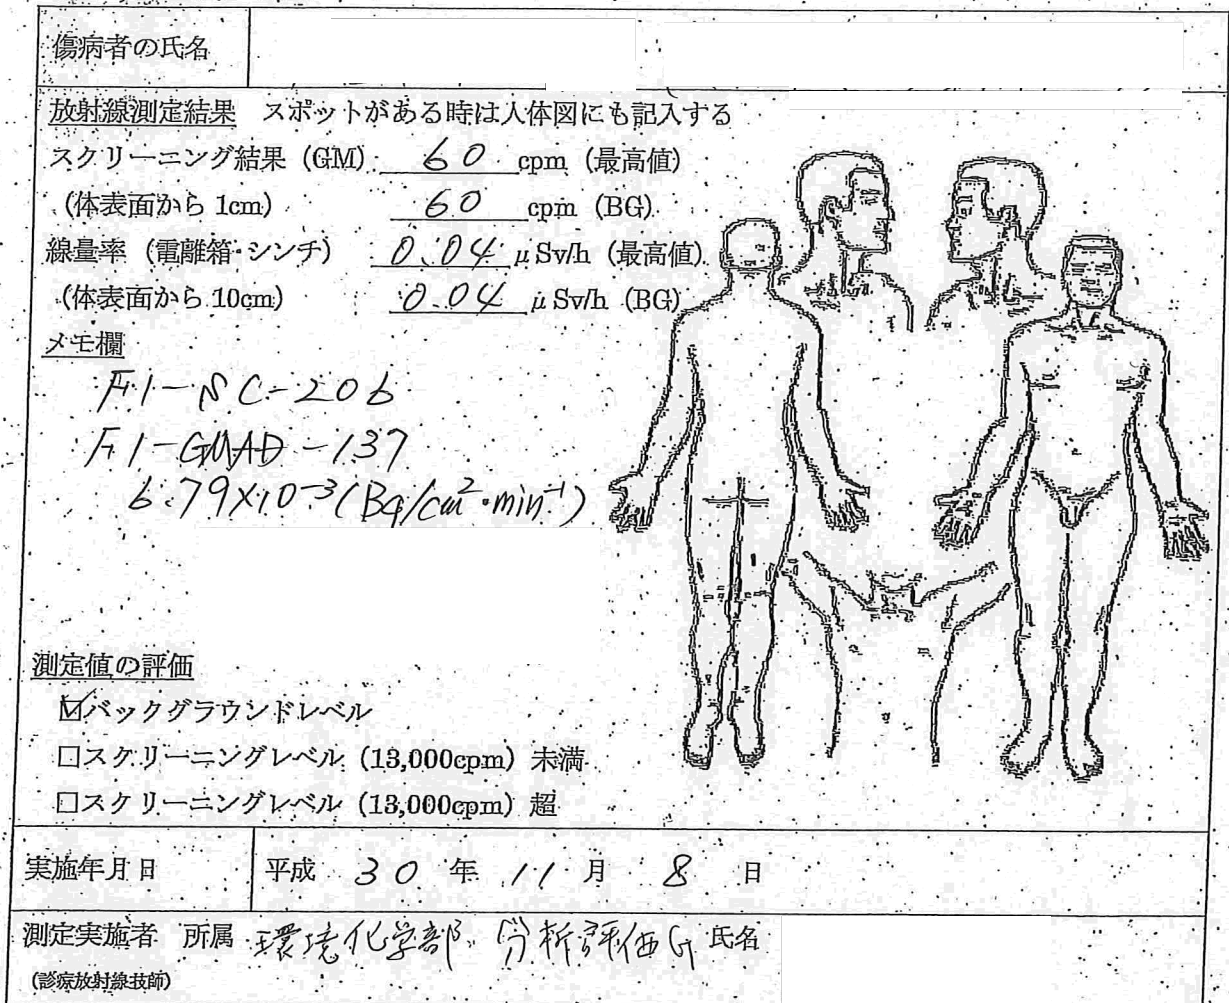 傷病者の氏名
放射線測定結果 スポットがある時は人体図にも記入する
スクリーニング結果（GM） 60 cpm（最高値）
（体表面から 1cm） 60 cpm（BG）
線量率（電離箱・シンチ） 0.04 μSv/h（最高値）
（体表面から 10cm） 0.04 μSv/h（BG）
メモ欄
F1-SC-206
F1-GMAD-137
6.79×10⁻³(Bq/cm²・min⁻¹)
測定値の評価
☑バックグラウンドレベル
□スクリーニングレベル（13,000cpm）未満
□スクリーニングレベル（13,000cpm）超
実施年月日 平成 30 年 11 月 8 日
測定実施者 所属 環境化学部 分析評価G 氏名
（診療放射線技師）